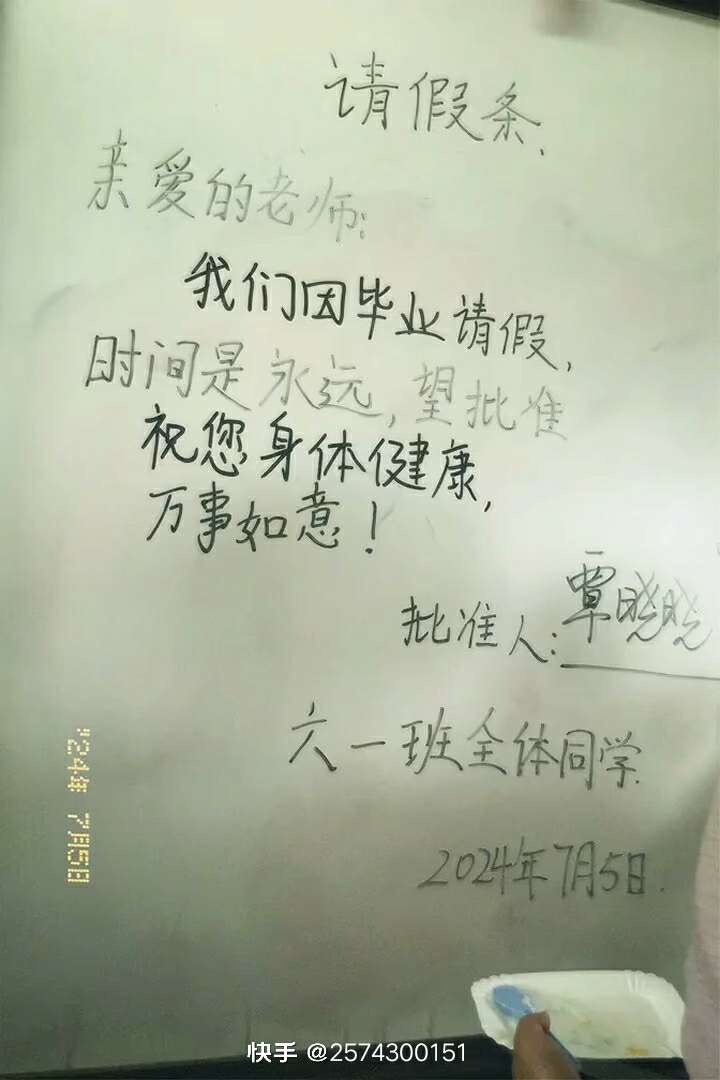 请假条、
亲爱的老师:
我们因毕业请假,
时间是永远,望批准
祝您身体健康,
万事如意!
批准人:覃晓晓
六一班全体同学.
2024年7月5日.
'24年 7月5日
快手 @2574300151